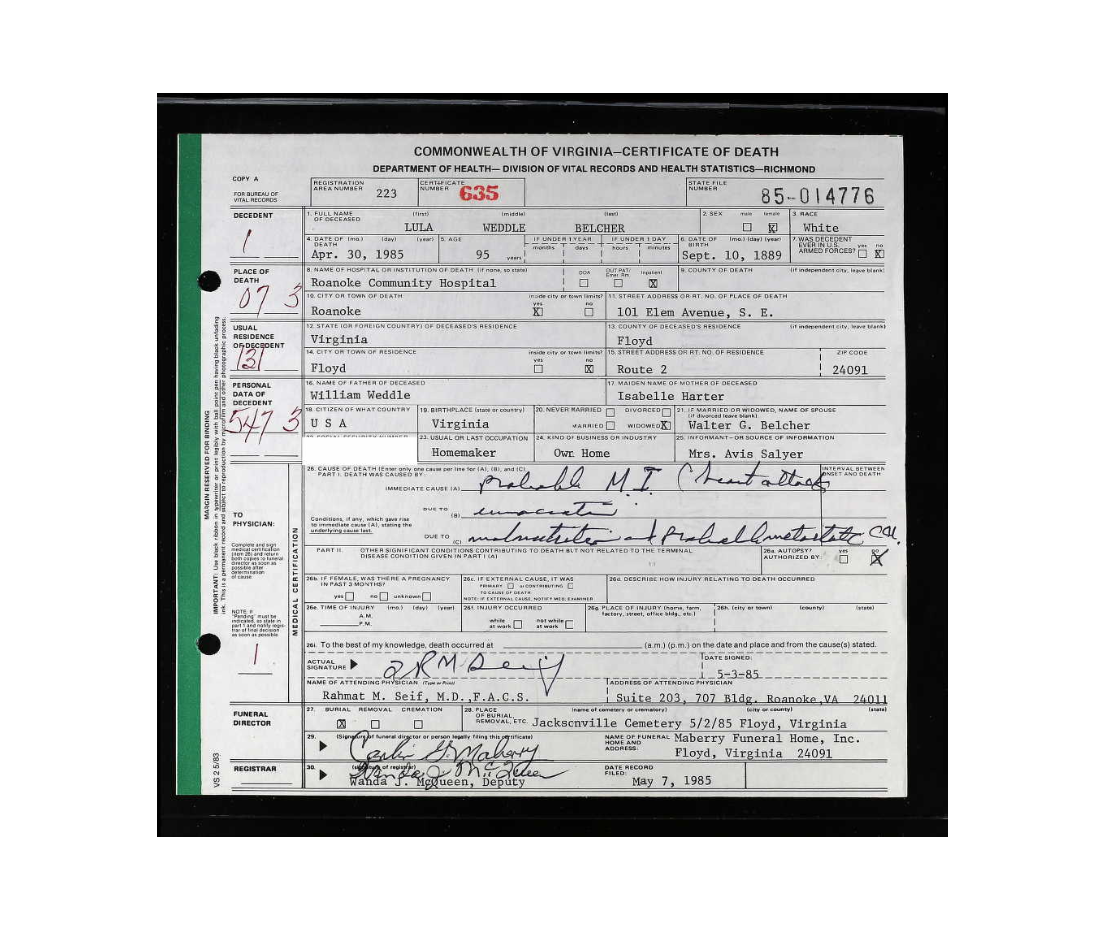 COMMONWEALTH OF VIRGINIA—CERTIFICATE OF DEATH
DEPARTMENT OF HEALTH— DIVISION OF VITAL RECORDS AND HEALTH STATISTICS—RICHMOND
COPY A
FOR BUREAU OF VITAL RECORDS
REGISTRATION AREA NUMBER 223
CERTIFICATE NUMBER 635
STATE FILE NUMBER 85-014776
DECEDENT
1
1. FULL NAME OF DECEASED (first) (middle) (last)
LULA WEDDLE BELCHER
2. SEX male female X
3. RACE White
4. DATE OF DEATH (mo.) (day) (year) Apr. 30, 1985
5. AGE 95 years
IF UNDER 1 YEAR months days
IF UNDER 1 DAY hours minutes
6. DATE OF BIRTH (mo.) (day) (year) Sept. 10, 1889
7. WAS DECEDENT EVER IN U.S. ARMED FORCES? yes no X
PLACE OF DEATH
07 3
8. NAME OF HOSPITAL OR INSTITUTION OF DEATH (if none, so state)
Roanoke Community Hospital
DOA OUT PAT/ Emer Rm Inpatient X
9. COUNTY OF DEATH (if independent city, leave blank)
10. CITY OR TOWN OF DEATH inside city or town limits? yes X no
Roanoke
11. STREET ADDRESS OR RT. NO. OF PLACE OF DEATH
101 Elem Avenue, S. E.
USUAL RESIDENCE OF DECEDENT
131
12. STATE (OR FOREIGN COUNTRY) OF DECEASED'S RESIDENCE
Virginia
13. COUNTY OF DECEASED'S RESIDENCE (if independent city, leave blank)
Floyd
14. CITY OR TOWN OF RESIDENCE inside city or town limits? yes no X
Floyd
15. STREET ADDRESS OR RT. NO. OF RESIDENCE ZIP CODE
Route 2 24091
PERSONAL DATA OF DECEDENT
547 3
16. NAME OF FATHER OF DECEASED
William Weddle
17. MAIDEN NAME OF MOTHER OF DECEASED
Isabelle Harter
18. CITIZEN OF WHAT COUNTRY
U S A
19. BIRTHPLACE (state or country)
Virginia
20. NEVER MARRIED DIVORCED
MARRIED WIDOWED X
21. IF MARRIED OR WIDOWED, NAME OF SPOUSE (if divorced leave blank)
Walter G. Belcher
23. USUAL OR LAST OCCUPATION
Homemaker
24. KIND OF BUSINESS OR INDUSTRY
Own Home
25. INFORMANT—OR SOURCE OF INFORMATION
Mrs. Avis Salyer
MARGIN RESERVED FOR BINDING
MEDICAL CERTIFICATION
TO PHYSICIAN:
Complete and sign medical certification (item 26) and return both copies to funeral director as soon as possible after determination of cause
NOTE: If "Pending" must be indicated, so state in part 1 and notify registrar of final decision as soon as possible
1
26. CAUSE OF DEATH (Enter only one cause per line for (A), (B), and (C)
PART I. DEATH WAS CAUSED BY:
INTERVAL BETWEEN ONSET AND DEATH
IMMEDIATE CAUSE (A) probable M.I. (heart attack
DUE TO (B)
Conditions, if any, which gave rise to immediate cause (A), stating the underlying cause last.
DUE TO (C) malnutrition probable metastatic CA.
PART II. OTHER SIGNIFICANT CONDITIONS CONTRIBUTING TO DEATH BUT NOT RELATED TO THE TERMINAL DISEASE CONDITION GIVEN IN PART I (A)
26a. AUTOPSY? AUTHORIZED BY: yes no X
26b. IF FEMALE, WAS THERE A PREGNANCY IN PAST 3 MONTHS?
yes no unknown
26c. IF EXTERNAL CAUSE, IT WAS
PRIMARY or CONTRIBUTING
TO CAUSE OF DEATH
NOTE: IF EXTERNAL CAUSE, NOTIFY MED. EXAMINER
26d. DESCRIBE HOW INJURY RELATING TO DEATH OCCURRED
26e. TIME OF INJURY (mo.) (day) (year)
A.M.
P.M.
26f. INJURY OCCURRED
while at work not while at work
26g. PLACE OF INJURY (home, farm, factory, street, office bldg., etc.)
26h. (city or town) (county) (state)
26i. To the best of my knowledge, death occurred at (a.m.) (p.m.) on the date and place and from the cause(s) stated.
ACTUAL SIGNATURE
DATE SIGNED: 5-3-85
NAME OF ATTENDING PHYSICIAN (Type or Print)
Rahmat M. Seif, M.D.,F.A.C.S.
ADDRESS OF ATTENDING PHYSICIAN
Suite 203, 707 Bldg. Roanoke,VA 24011
FUNERAL DIRECTOR
27. BURIAL REMOVAL CREMATION
X
28. PLACE OF BURIAL, REMOVAL, ETC. (name of cemetery or crematory) (city or county) (state)
Jacksonville Cemetery 5/2/85 Floyd, Virginia
29. (Signature of funeral director or person legally filing this certificate)
NAME OF FUNERAL HOME AND ADDRESS: Maberry Funeral Home, Inc.
Floyd, Virginia 24091
REGISTRAR
30. (signature of registrar)
Wanda J. McQueen
Wanda J. McQueen, Deputy
DATE RECORD FILED: May 7, 1985
VS 2 5/83